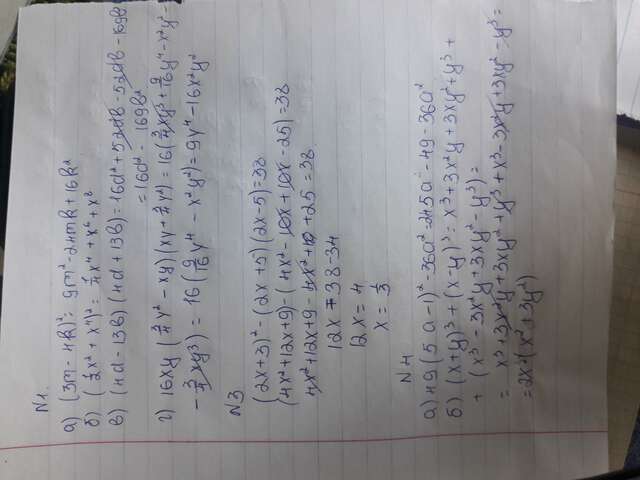 N1.
а) (3m - 4k)²= 9m² - 24mk + 16k²
б) (1/2x² + x⁴)² = 1/4x⁴ + x⁶ + x⁸
в) (4d - 13b)(4d + 13b) = 16d² + 52db - 52db - 169b² =
= 16d² - 169b²
г) 16xy (3/4y² - xy)(xy + 3/4y²) = 16(3/4xy³ + 9/16y⁴ - x²y² -
- 3/4xy³) = 16(9/16y⁴ - x²y²) = 9y⁴ - 16x²y²
N3
(2x+3)² - (2x+5)(2x-5) = 38
(4x²+12x+9) - (4x² - 10x + 10x - 25) = 38
4x²+12x+9 - 4x² + 25 = 38
12x = 38-34
12x = 4
x = 1/3
N4
а) 49(5a-1)² - 36a² = 245a² - 49 - 36a²
б) (x+y)³ + (x-y)³ = x³ + 3x²y + 3xy² + y³ +
+ (x³ - 3x²y + 3xy² - y³) =
= x³ + 3x²y + 3xy² + y³ + x³ - 3x²y + 3xy² - y³ =
= 2x(x² + 3y²)